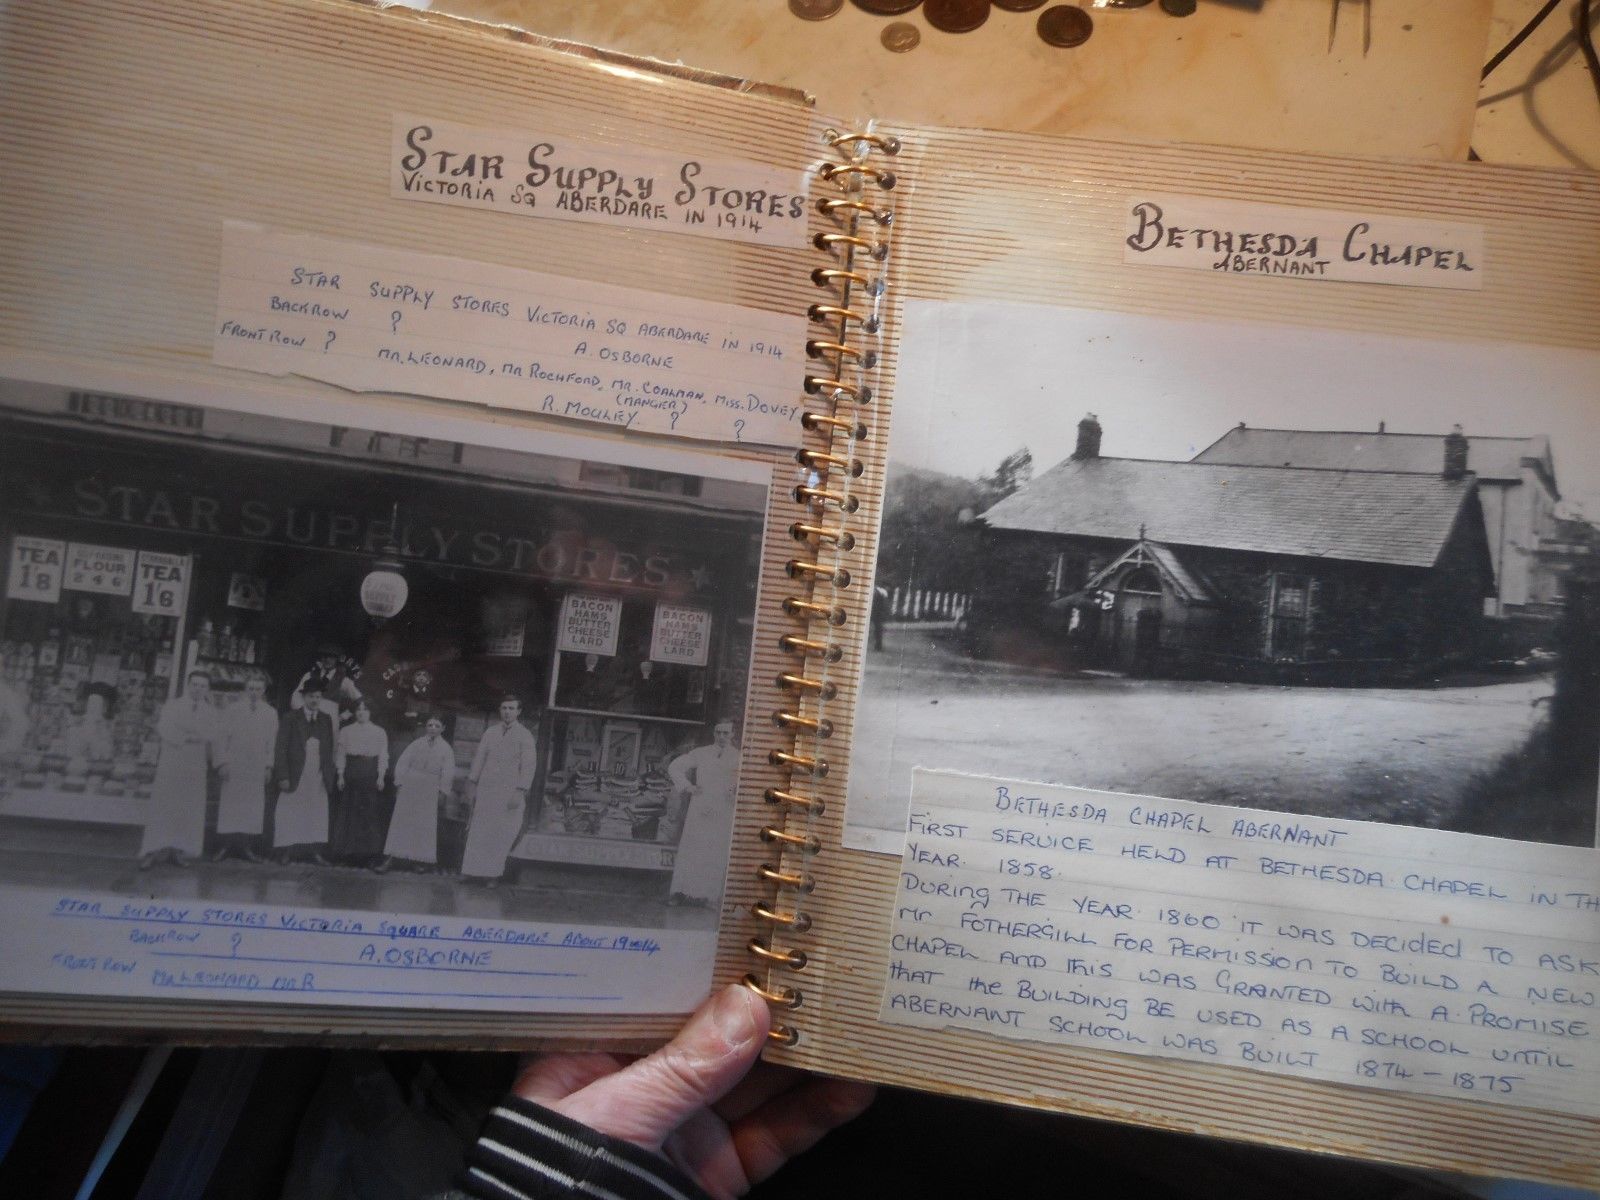 STAR SUPPLY STORES
VICTORIA SQ ABERDARE IN 1914
STAR SUPPLY STORES VICTORIA SQ ABERDARE IN 1914
BACKROW ? A. OSBORNE
FRONT ROW ? MR. LEONARD, MR ROCHFORD, MR. COALMAN, MISS. DOVEY,
(MANGER)
R. MOULEY. ? ?
STAR SUPPLY STORES
TEA
1/8
FLOUR
2 4 6
TEA
1/6
BACON
HAMS
BUTTER
CHEESE
LARD
BACON
HAMS
BUTTER
CHEESE
LARD
STAR SUPPLY STORES VICTORIA SQUARE ABERDARE ABOUT 1914
BACKROW ? A. OSBORNE
FRONT ROW MR LEONARD MR R
BETHESDA CHAPEL
ABERNANT
BETHESDA CHAPEL ABERNANT
FIRST SERVICE HELD AT BETHESDA CHAPEL IN TH
YEAR. 1858.
DURING THE YEAR 1860 IT WAS DECIDED TO ASK
Mr FOTHERGILL FOR PERMISSION TO BUILD A NEW
CHAPEL AND THIS WAS GRANTED WITH A PROMISE
THAT THE BUILDING BE USED AS A SCHOOL UNTIL
ABERNANT SCHOOL WAS BUILT 1874 - 1875